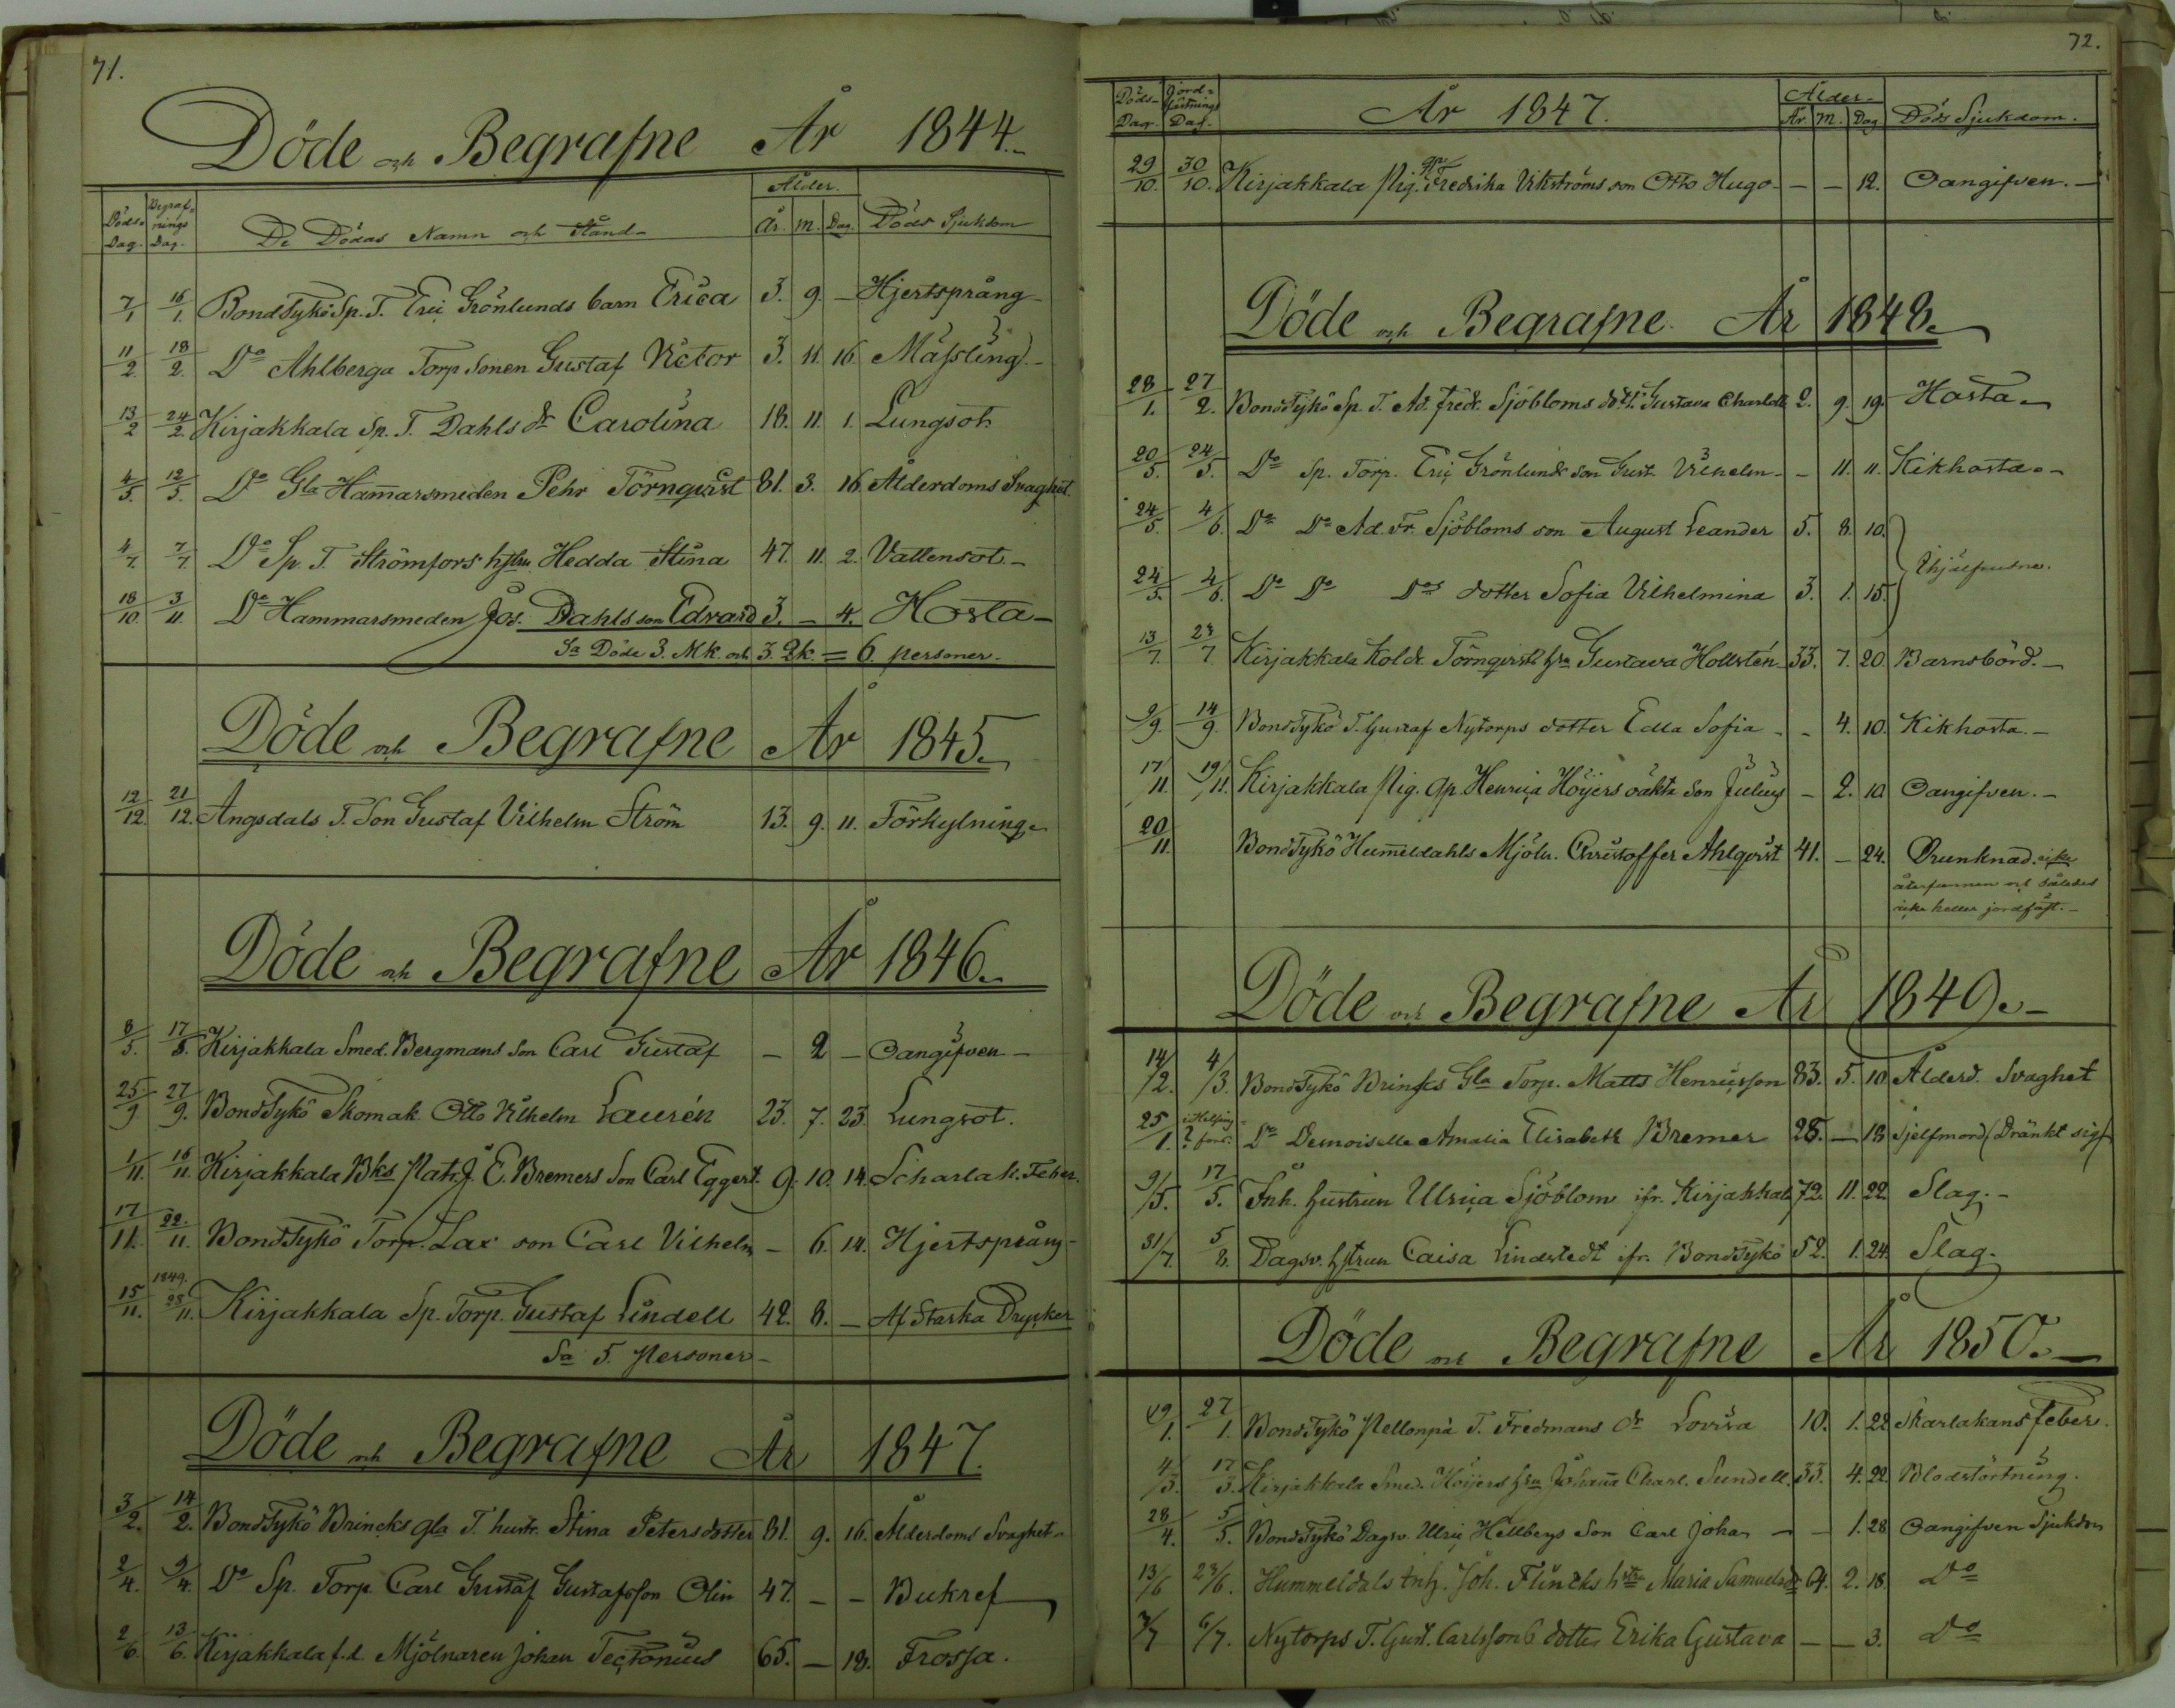 71.
Döde och Begrafne År 1844.
Döds- Dag. Begraf- nings Dag. De Dödas Namn och Stånd Ålder. År. M. Dag. Döds Sjukdom
7/1 16/1. BondTykö Sp. T. Eric Grönlunds barn Erica 3. 9. — Hjertsprång
11/2. 18/2. Do Ahlberga Torp Sonen Gustaf Victor 3. 11. 16. Mässling
13/2 24/2. Kirjakkala Sp. T. Dahls dr Carolina 18. 11. 1. Lungsot
4/5. 12/5. Do Gla Hamarsmeden Pehr Törnqvist 81. 3. 16. Ålderdoms Svaghet.
4/7. 7/7. Do Sp. T. Strömfors hstru Hedda Stina 47. 11. 2. Vattensot.
18/10. 3/11. Do Hammarsmeden Jos. Dahls son Edvard 3. — 4. Hosta
Sa Döde 3. Mk. och 3. Qk. = 6. personer.
Döde och Begrafne År 1845.
12/12. 21/12. Angsdals T. Son Gustaf Vilhelm Ström 13. 9. 11. Förkylning
Döde och Begrafne År 1846.
8/5. 17/5. Kirjakkala Smed. Bergmans Son Carl Gustaf — 2 — Oangifven
25/9 27/9. BondTykö Skomak. Otto Vilhelm Laurén 23. 7. 23. Lungsot.
1/11. 16/11. Kirjakkala Bks Patr. J. E. Bremers Son Carl Eggert. 9. 10. 14. Scharlak. Feber.
17/11. 22./11. BondTykö Torp. Lax son Carl Vilhelm — 6. 14. Hjertsprång
1849.
15/11. 28/11. Kirjakkala Sp. Torp. Gustaf Lindell 42. 8. — Af Starka Drycker
Sa 5. Personer
Döde och Begrafne År 1847.
3/2. 14/2. BondTykö Brincks gla T. hustr. Stina Petersdotter 81. 9. 16. Ålderdoms Svaghet
2/4. 9/4. Do Sp. Torp. Carl Gustaf Gustafsson Olin 47. — — Bukref
2/6. 13/6. Kirjakkala f.d. Mjölnaren Johan Tectonius 65. — 18. Frossa.
72.
Döds- Dag. Jord- fästnings Dag. År 1847. Ålder. År M. Dag Döds Sjukdom.
29/10. 30/10. Kirjakkala Pig. Fredrika Vikströms son Otto Hugo — — 12. Oangifven.
Döde och Begrafne År 1848.
28/1. 27/2. BondTykö Sp. T. Ad. Fredr. Sjöbloms dott. Gustava Charlott 2. 9. 19. Hosta
20/5. 24/5. Do Sp. Torp. Eric Grönlunds son Gust. Vilhelm — 11. 11. Kikhosta
24/5. 4/6. Do Do Ad. Fr. Sjöbloms son August Leander 5. 8. 10.
24/5. 4/6. Do Do Dos dotter Sofia Vilhelmina 3. 1. 15.
13/7. 23/7. Kirjakkala Koldr. Törnqvists hru Gustava Hollstén 33. 7. 20. Barnsbörd.
9/9. 14/9. BondTykö T. Gustaf Nytorps dotter Edla Sofia - 4. 10. Kikhosta.
17/11. 19/11. Kirjakkala Pig. Qp. Henrica Höijers oäkta Son Julius — 2. 10 Oangifven.
20/11. BondTykö Humeldahls Mjöln. Christoffer Ahlqvist 41. — 24. Drunknad. icke
återfunnen och således
icke heller jordfäst.
Döde och Begrafne År 1849.
14/2. 4/3. BondTykö Brincks Gla Torp. Matts Henricsson 83. 5. 10 Ålderd. Svaghet
25/1. i Helsing- fors. Do Demoiselle Amalia Elisabeth Bremer 28. — 18 Sjelfmord (Dränkt sig)
9/5. 17/5. Inh. hustrun Ulrica Sjöblom ifr. Kirjakkala 72. 11. 22. Slag.
31/7. 5/8. Dagsv. hstrun Caisa Lindstedt ifr. BondTykö 52. 1. 24. Slag.
Döde och Begrafne År 1850.
19/1. 27/1. BondTykö Pellonpä T. Fredmans dr Lovisa 10. 1. 22 Skarlakans feber.
4/3. 17/3. Kirjakkala Smed. Höijers hru Johana Charl. Sundell. 33. 4. 22. Blodstörtning.
28/4. 5/5. BondTykö Dagsv. Ulric Hellbergs Son Carl Johan — — 1. 28 Oangifven Sjukdom
13/6 23/6. Hummeldals Inh. Joh. Flincks hstru Maria Samuelsdr 64. 2. 18. Do
3/7 6/7. Nytorps T. Gust. Carlssons dotter Erika Gustava — — 3. Do